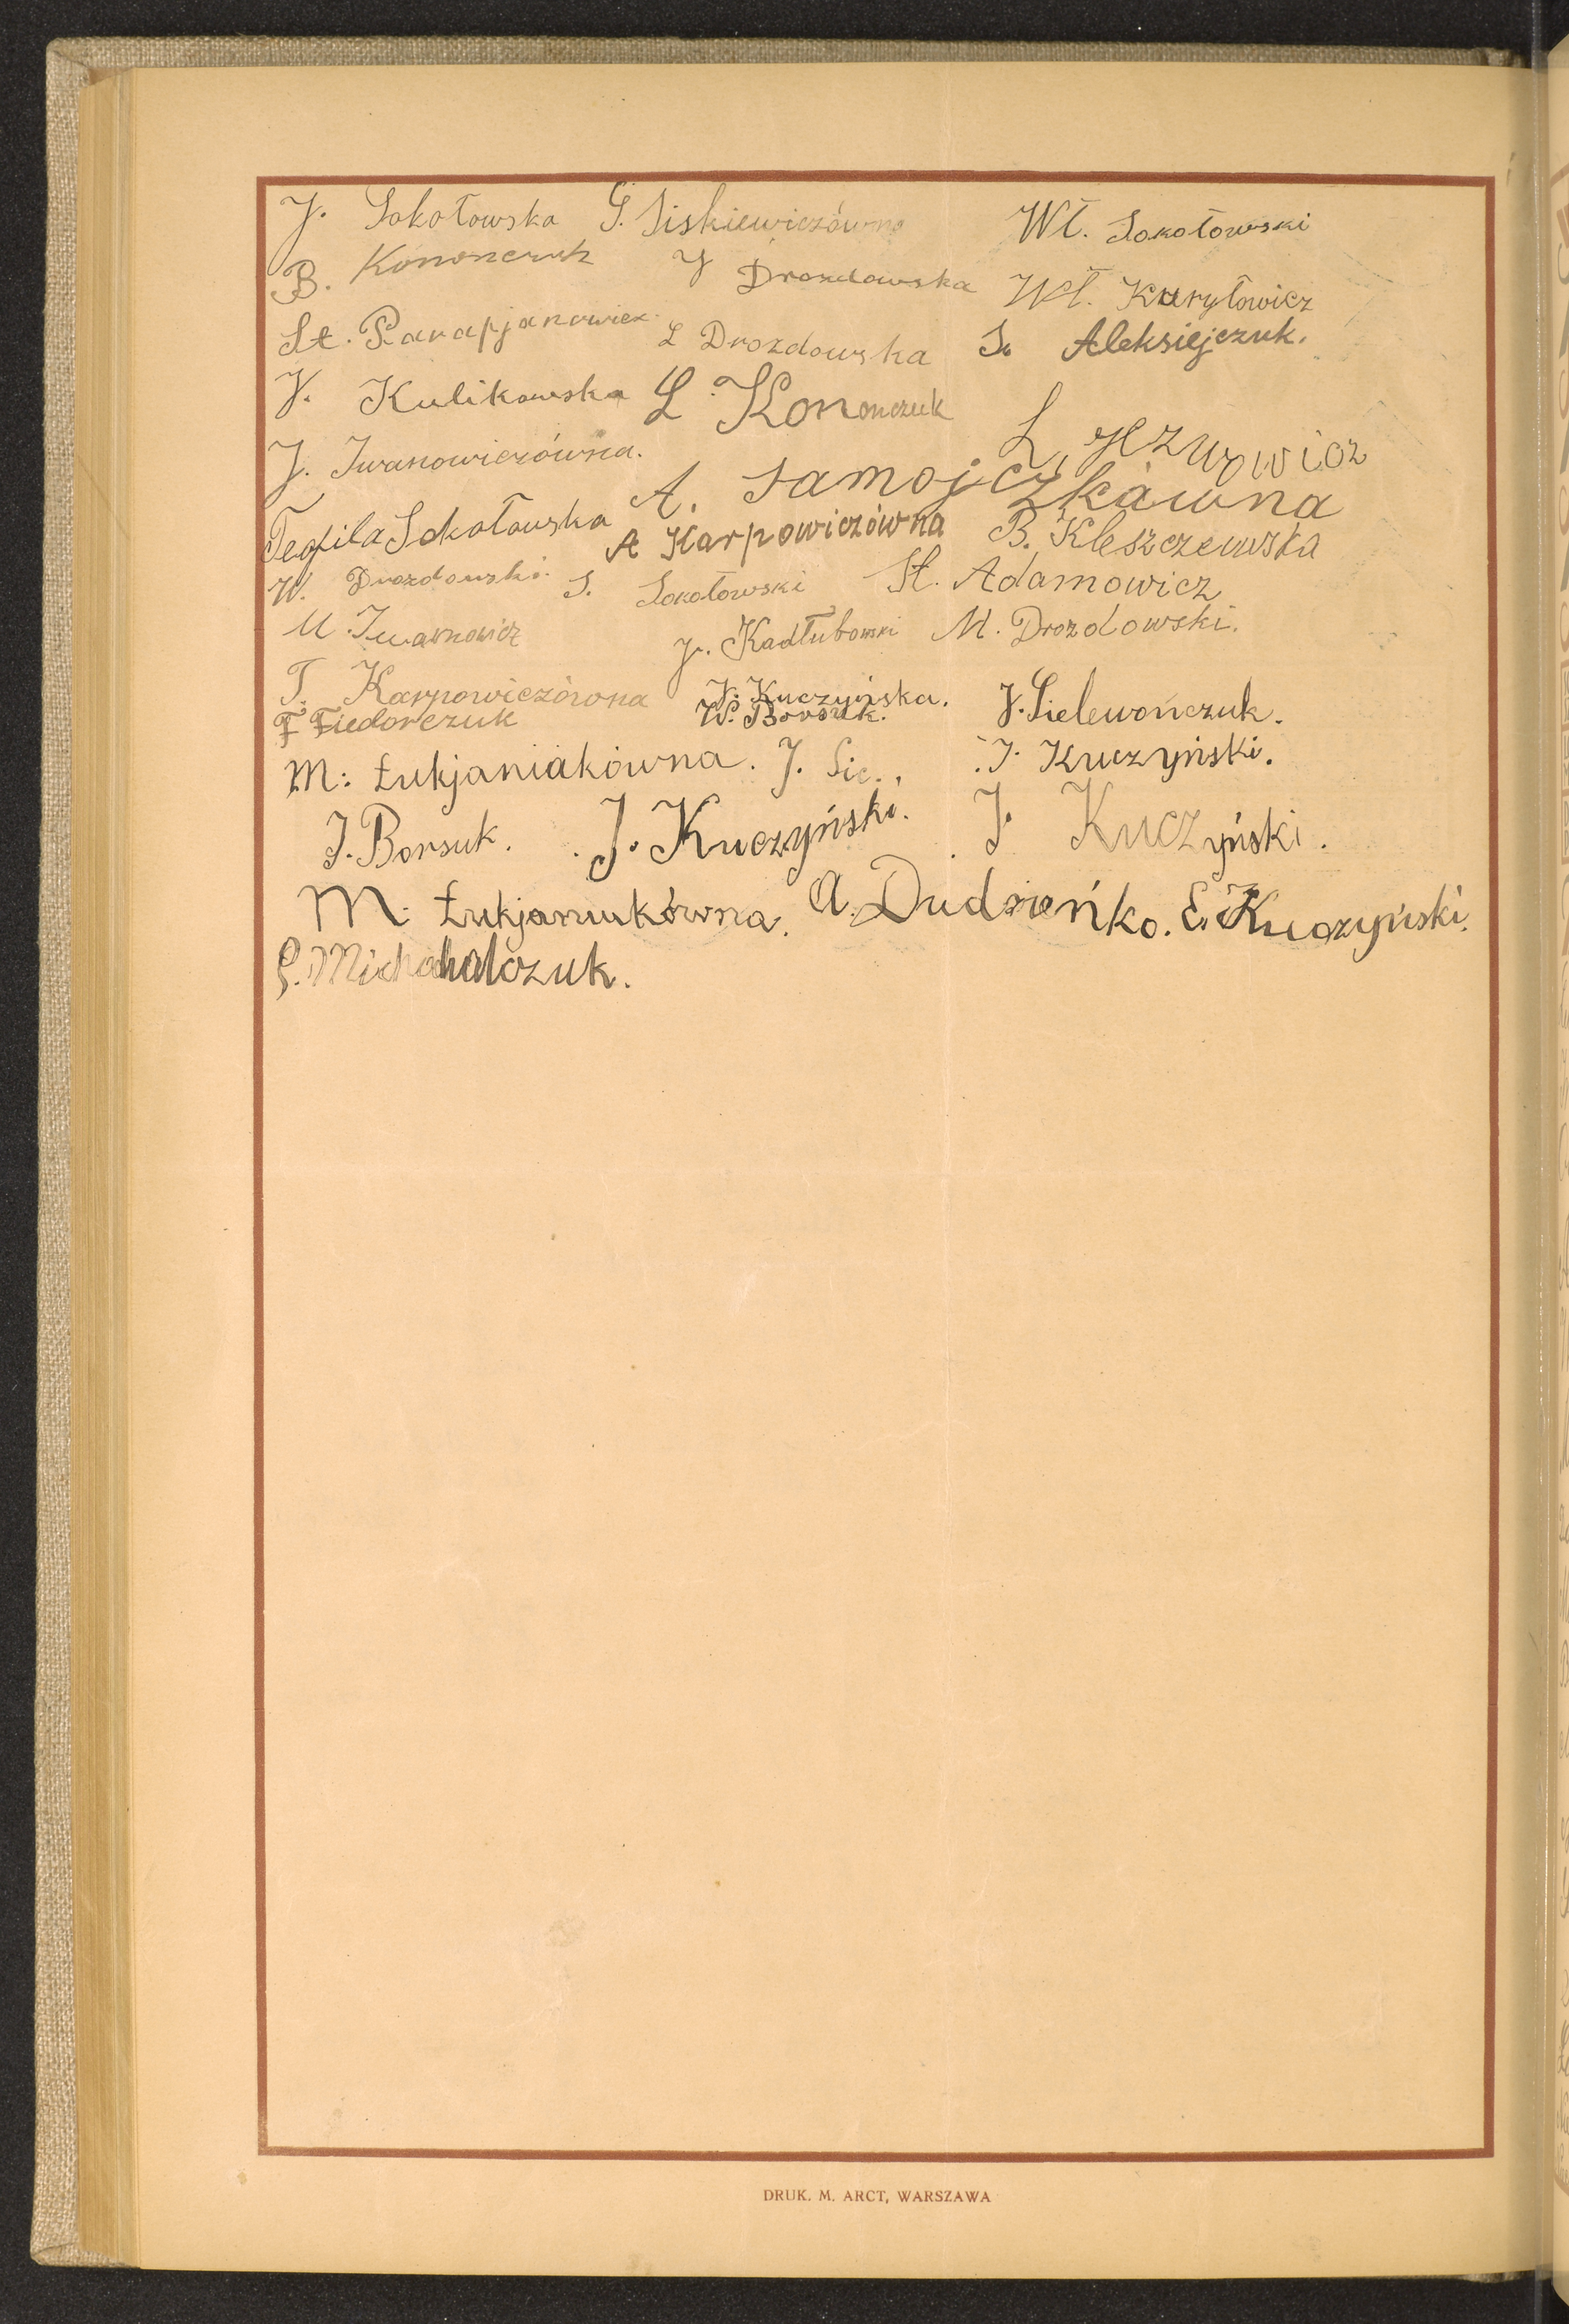 J. Sokołowska G. Siskiewiczówna Wł. Sokołowski
B. Kononczuk J Drozdowska Wł. Kuryłowicz
St. Parapjanowicz L Drozdowska S. Aleksiejczuk.
J. Kulikowska L. Kononczuk
J. Iwanowiczówna. A. Samojczkówna L. Jezuwowicz
Teofila Sokołowska A Karpowiczówna B. Kleszczewska
W. Drozdowski. S. Sokołowski St. Adamowicz
M. Iwanowicz J. Kadłubowski M. Drozdowski.
T. Karpowiczówna J. Kuczyńska. J. Sielewończuk.
F Fiedorczuk W. Borsuk.
M: Łukjaniakówna. J. Sie.. J. Kuczyński.
J. Borsuk. J. Kuczyński. J. Kuczyński.
M: Łukjaniukówna. A. Dudzieńko. E. Kuczyński.
P. Michahalczuk.
DRUK. M. ARCT, WARSZAWA